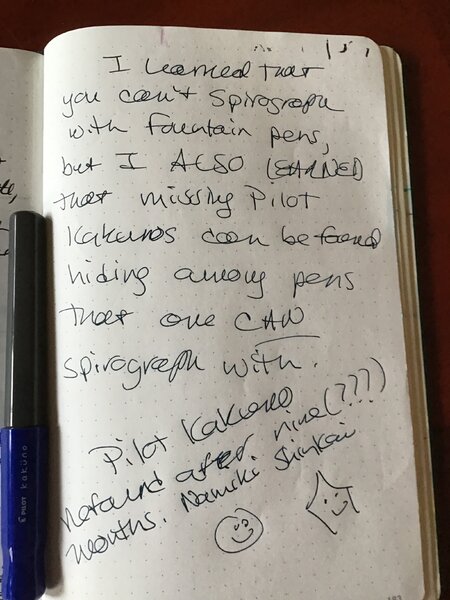 I learned that
you can't spirograph
with fountain pens,
but I ALSO LEARNED
that missing Pilot
Kakunos can be found
hiding among pens
that one CAN
spirograph with.
Pilot Kakuno
Refound after nine(???)
months. Namiki Shinkai
PILOT kaküno